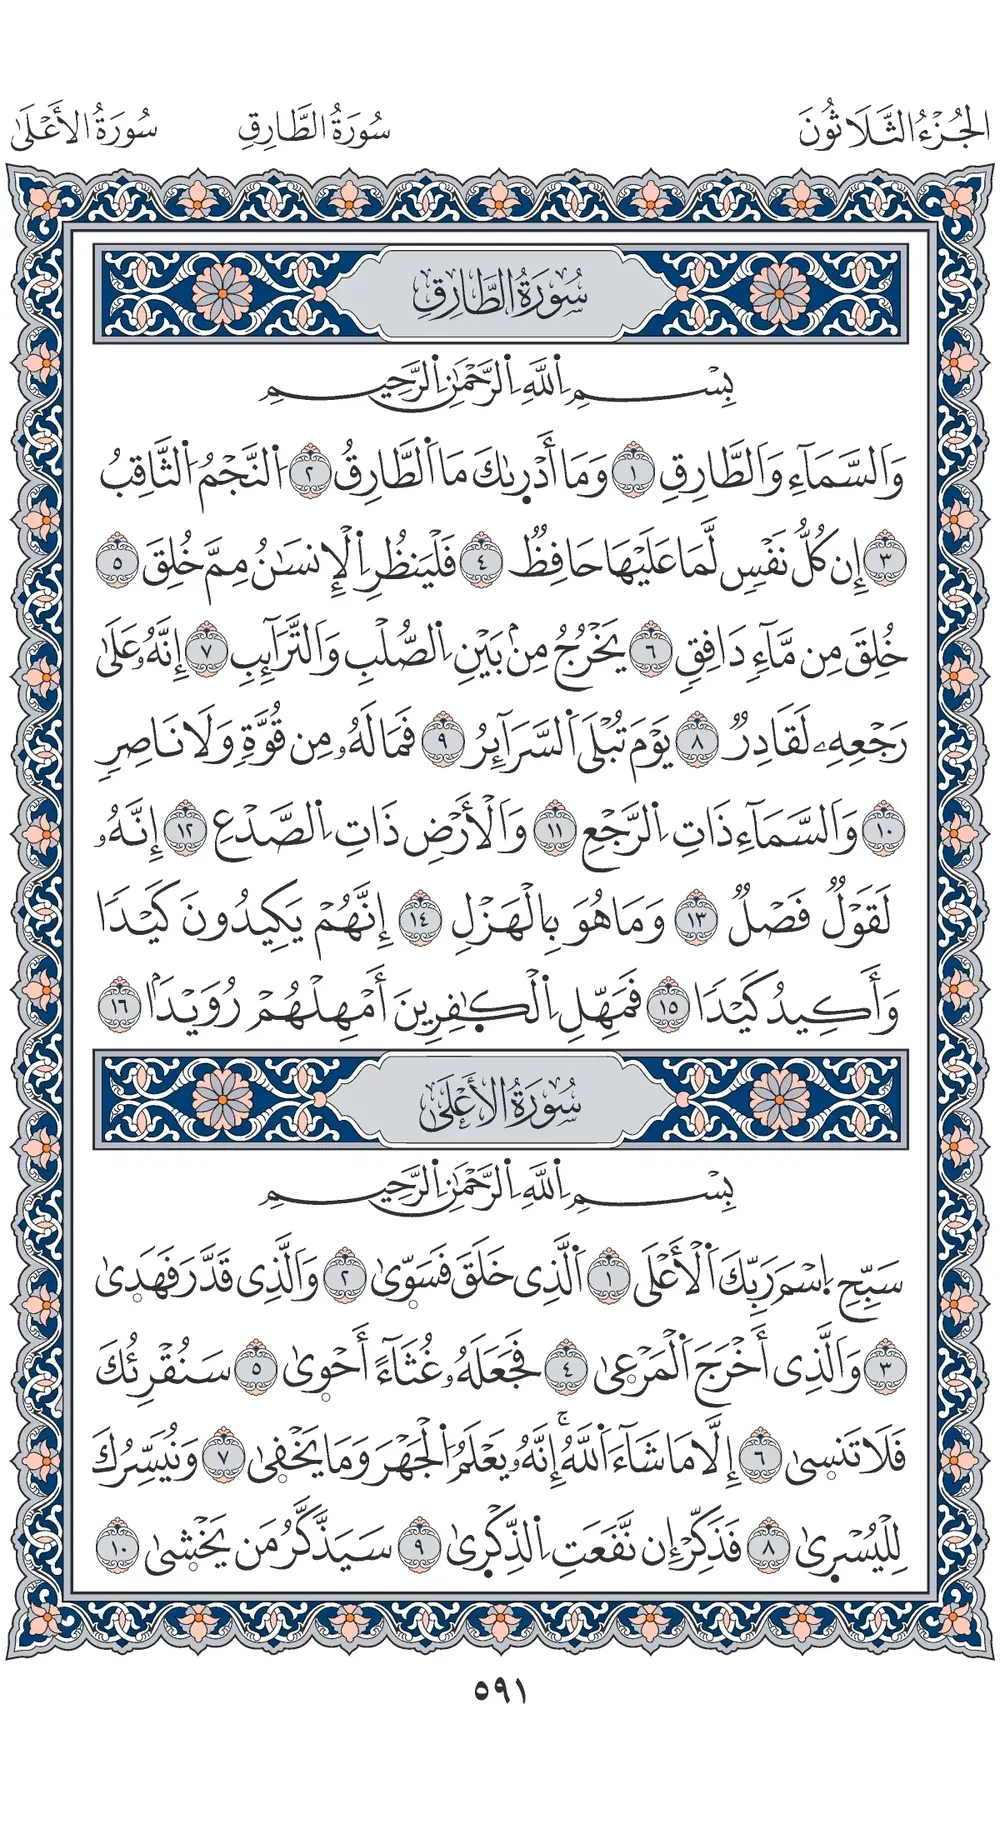 الجُزْءُ الثَّلَاثُونَ سُورَةُ الطَّارِقِ سُورَةُ الأَعْلَىٰ
سُورَةُ الطَّارِقِ
بِسْمِ اِ۬للَّهِ اِ۬لرَّحْمَٰنِ اِ۬لرَّحِيمِ
وَاَلسَّمَآءِ وَالطَّارِقِ ١ وَمَا أَدْر۪ىٰكَ مَا اَ۬لطَّارِقُ ٢ اَ۬لنَّجْمُ اُ۬لثَّاقِبُ
٣ إِن كُلُّ نَفْسٍ لَّمَا عَلَيْهَا حَافِظٌ ٤ فَلْيَنظُرِ اِ۬لْإِنسَٰنُ مِمَّ خُلِقَ ٥
خُلِقَ مِن مَّآءٍ دَافِقٍ ٦ يَخْرُجُ مِنۢ بَيْنِ اِ۬لصُّلْبِ وَالتَّرَآئِبِ ٧ إِنَّهُۥ عَلَىٰ
رَجْعِهِۦ لَقَادِرٌ ٨ يَوْمَ تُبْلَى اَ۬لسَّرَآئِرُ ٩ فَمَا لَهُۥ مِن قُوَّةٍ وَلَا نَاصِرٍ
١٠ وَاَلسَّمَآءِ ذَاتِ اِ۬لرَّجْعِ ١١ وَالْأَرْضِ ذَاتِ اِ۬لصَّدْعِ ١٢ إِنَّهُۥ
لَقَوْلٌ فَصْلٌ ١٣ وَمَا هُوَ بِالْهَزْلِ ١٤ إِنَّهُمْ يَكِيدُونَ كَيْدًا
وَأَكِيدُ كَيْدًا ١٥ فَمَهِّلِ اِ۬لْكَٰفِرِينَ أَمْهِلْهُمْ رُوَيْدَۢا ١٦
سُورَةُ الأَعْلَىٰ
بِسْمِ اِ۬للَّهِ اِ۬لرَّحْمَٰنِ اِ۬لرَّحِيمِ
سَبِّحِ اِ۪سْمَ رَبِّكَ اَ۬لْأَعْلَى ١ اَ۬لَّذِي خَلَقَ فَسَوّ۪ىٰ ٢ وَالَّذِي قَدَّرَ فَهَد۪ىٰ
٣ وَالَّذِي أَخْرَجَ اَ۬لْمَرْع۪ىٰ ٤ فَجَعَلَهُۥ غُثَآءً أَحْو۪ىٰ ٥ سَنُقْرِئُكَ
فَلَا تَنس۪ىٰ ٦ إِلَّا مَا شَآءَ اَ۬للَّهُۚ إِنَّهُۥ يَعْلَمُ اُ۬لْجَهْرَ وَمَا يَخْف۪ىٰ ٧ وَنُيَسِّرُكَ
لِلْيُسْر۪ىٰ ٨ فَذَكِّرْ إِن نَّفَعَتِ اِ۬لذِّكْر۪ىٰ ٩ سَيَذَّكَّرُ مَن يَخْش۪ىٰ ١٠
٥٩١